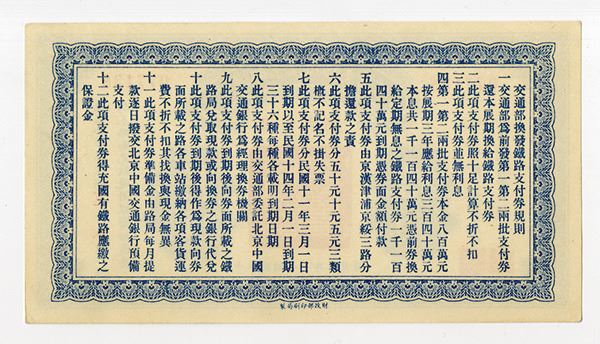 交通部換發鐵路支付券規則
一交通部爲前發第一第二兩批支付券
還本展期換給鐵路支付券
二此項支付券照付足計算不折不扣
三此項支付券並無利息
四第一第二兩批支付券本金八百萬元
按展期三年應給利息三百四十萬元
本息共一千一百四十萬元憑前券換
給定期無息之鐵路支付券一千一百
四十萬元到期憑券面金額付款
五此項支付券由京漢津浦京綏三路分
擔還款之責
六此項支付券分五十元十元五元三類
概不記名不掛失票
七此項支付券分民國十一年三月一日
到期以至民國十四年二月一日到期
三十六種每種各載明到期日期
八此項支付券由交通部委託北京中國
交通銀行爲經理換券機關
九此項支付券到期後向券面所載之鐵
路局兌取現款或向換券之銀行代兌
十此項支付券到期後得作爲現款向券
面所載之路各車站繳納各項客貨運
費不折不扣其找換與現金無異
十一此項支付券準備金由路局每月提
款逐日撥交北京中國交通銀行預備
支付
十二此項支付券得充國有鐵路應繳之
保證金
財政部印刷局製